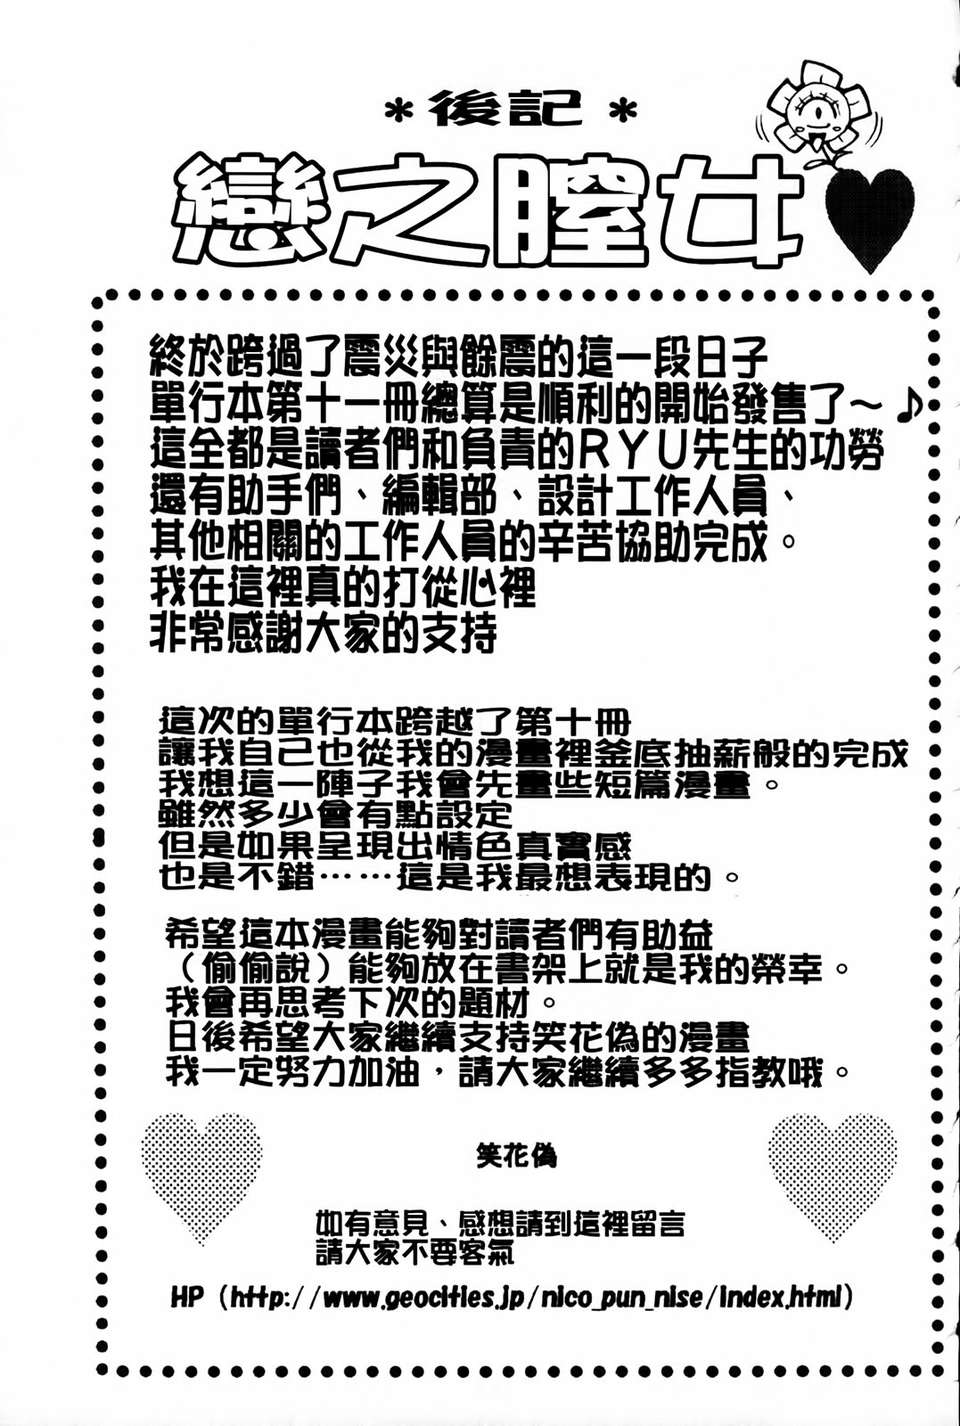 ＊後記＊
戀之膣女
終於跨過了震災與餘震的這一段日子
單行本第十一冊總算是順利的開始發售了～♪
這全都是讀者們和負責的ＲＹＵ先生的功勞
還有助手們、編輯部、設計工作人員、
其他相關的工作人員的辛苦協助完成。
我在這裡真的打從心裡
非常感謝大家的支持
這次的單行本跨越了第十冊
讓我自己也從我的漫畫裡釜底抽薪般的完成
我想這一陣子我會先畫些短篇漫畫。
雖然多少會有點設定
但是如果呈現出情色真實感
也是不錯……這是我最想表現的。
希望這本漫畫能夠對讀者們有助益
（偷偷說）能夠放在書架上就是我的榮幸。
我會再思考下次的題材。
日後希望大家繼續支持笑花偽的漫畫
我一定努力加油，請大家繼續多多指教哦。
笑花偽
如有意見、感想請到這裡留言
請大家不要客氣
HP（http://www.geocities.jp/nico_pun_nise/index.html）